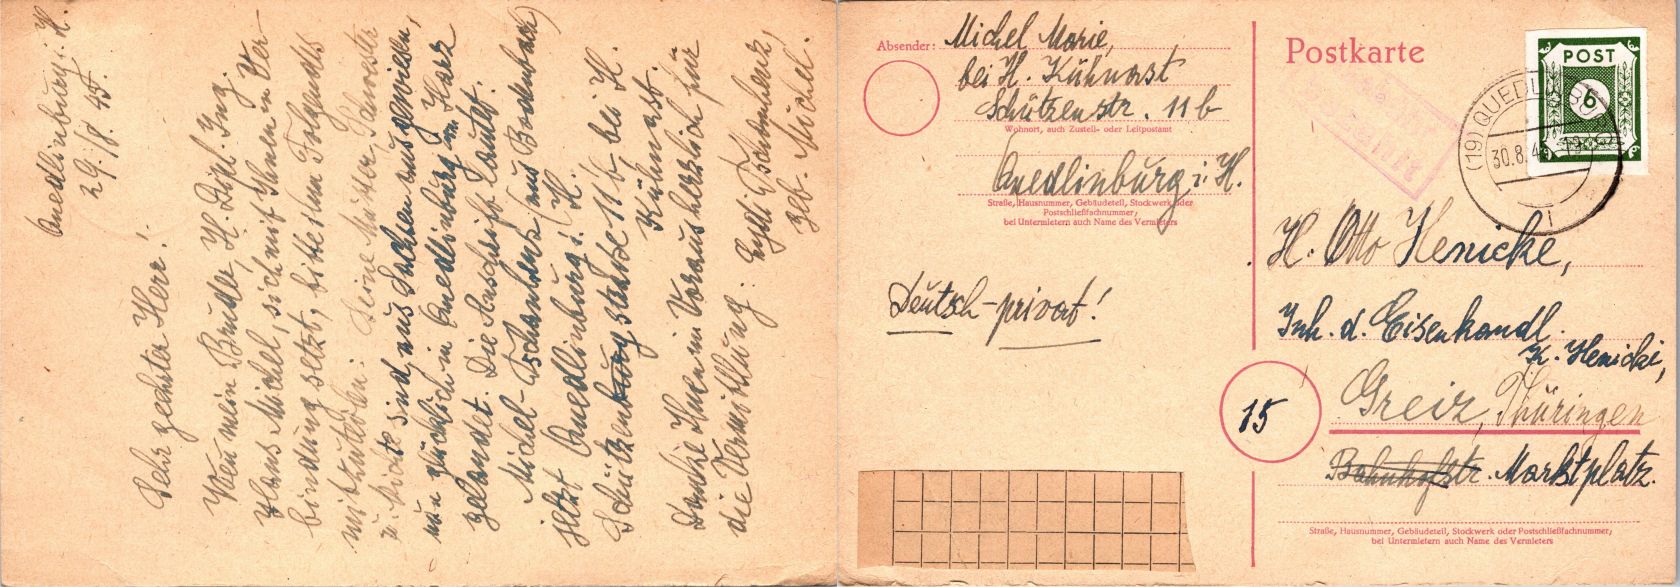 Quedlinburg i. H.
29./8. 45.
Sehr geehrter Herr!
Wenn mein Bruder, H. Dipl. Ing.
Hans Michel, sich mit Ihnen in Ver-
bindung setzt, bitte ihm Folgendes
mitzuteilen: Deine Mutter, Schwester
u. Nichte sind aus Sachsen ausgewiesen,
nun glücklich in Quedlinburg im Harz
gelandet. Die Anschrift lautet:
Michel-Tschanhenz (aus Bodenbach)
jetzt Quedlinburg i. H.
Schützenstraße 11 b, bei H.
Kühnast.
Danke Ihnen im Voraus herzlich für
die Vermittlung.
geb. Michel.
Absender: Michel Marie,
bei H. Kühnast
Schützenstr. 11 b
Wohnort, auch Zustell- oder Leitpostamt
Quedlinburg i. H.
Straße, Hausnummer, Gebäudeteil, Stockwerk oder
Postschließfachnummer,
bei Untermietern auch Name des Vermieters
Deutsch-privat!
Postkarte
POST
6
(19) QUEDLINBURG
30.8.4
1
H. Otto Henicke,
Inh. d. Eisenhandl.
K. Henicke,
15
Greiz, Thüringen
Bahnhofstr. Marktplatz.
Straße, Hausnummer, Gebäudeteil, Stockwerk oder Postschließfachnummer,
bei Untermietern auch Name des Vermieters